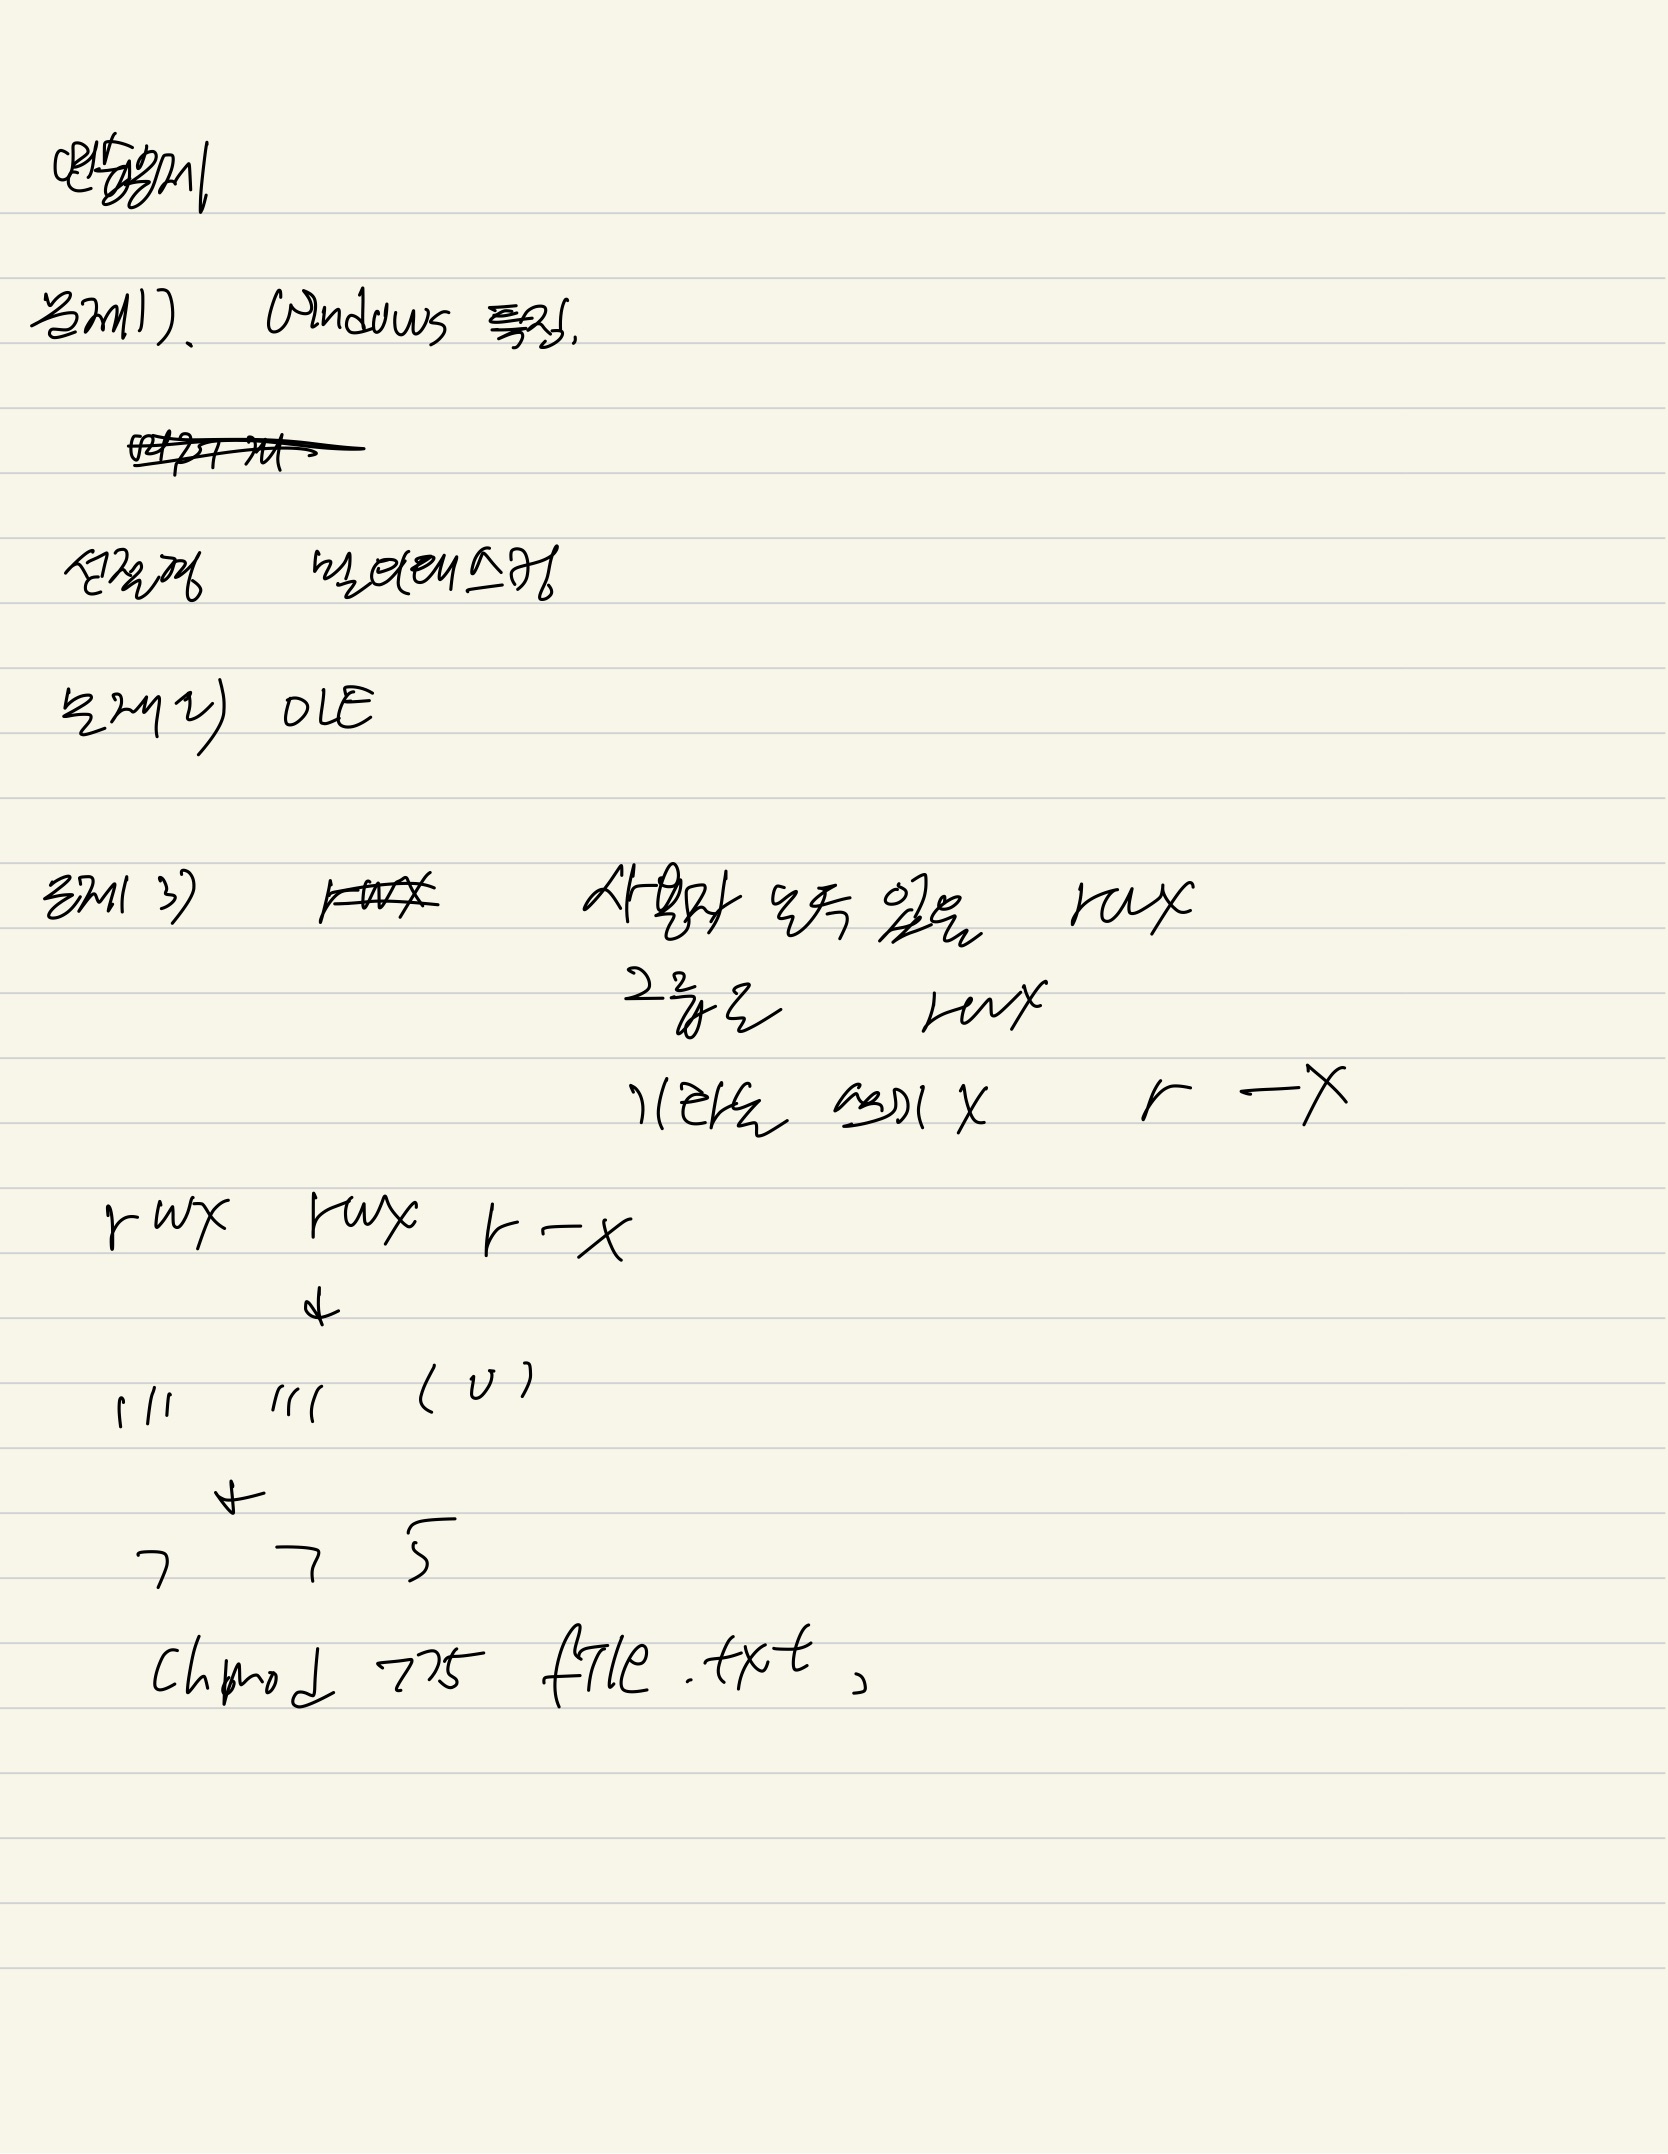 연습문제
문제1). Windows 특징.
선점형 멀티태스킹
문제2) OLE
문제3) rwx 사용자 모두 있음 rwx
그룹은 rwx
기타는 쓰기 X r - x
rwx rwx r - x
↓
111 111 101
↓
7 7 5
chmod 775 file.txt